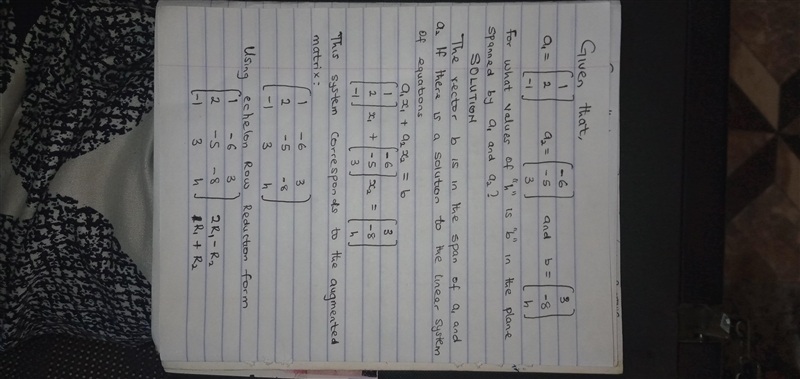 Given that,
a₁ = [1 2 -1] a₂ = [-6 -5 3] and b = [3 -8 h]
For what values of "h" is "b" in the plane
spanned by a₁ and a₂?
SOLUTION
The vector b is in the span of a₁ and
a₂ If there is a solution to the linear system
of equations
a₁x₁ + a₂x₂ = b
[1 2 -1] x₁ + [-6 -5 3] x₂ = [3 -8 h]
This system corresponds to the augmented
matrix:
1 -6 3
2 -5 -8
-1 3 h
Using echelon Row Reduction form
1 -6 3
2 -5 -8 2R₁ - R₂
-1 3 h R₁ + R₂